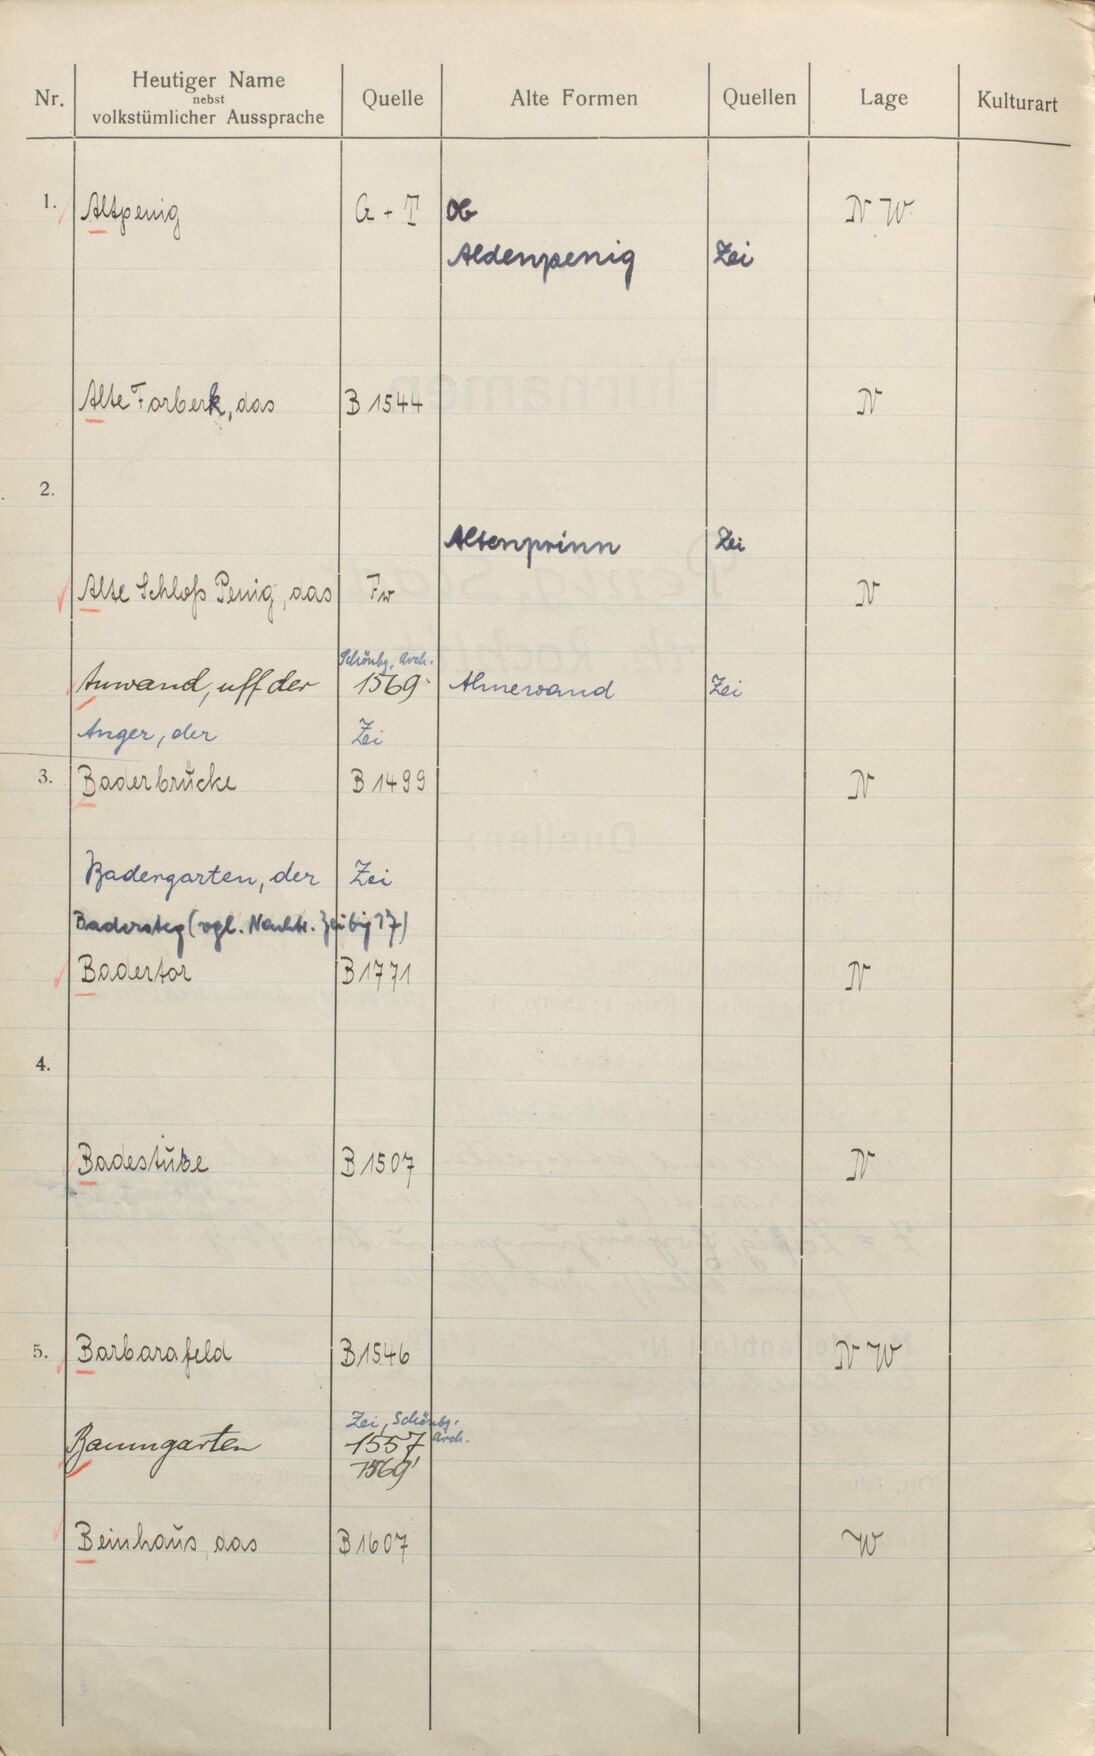 Nr. Heutiger Name Quelle Alte Formen Quellen Lage Kulturart
nebst
volkstümlicher Aussprache
1. Altpenig G + T Ob N W
Aldenpenig Zei
Alte Forberk, das B 1544 N
2.
Altenprinn Zei
Alte Schloß Penig, das Fw N
Schönbg. Arch.
Anwand, uff der 1569 Ahnewand Zei
Anger, der Zei
3. Baderbrŭcke B 1499 N
Badergarten, der Zei
Badersteg (vgl. Nachtr. Zeibig 17)
Badertor B 1771 N
4.
Badestŭbe B 1507 N
5. Barbarafeld B 1546 N W
Zei, Schönbg.
Arch.
Baumgarten 1557
1569
Beinhaŭs, das B 1607 W